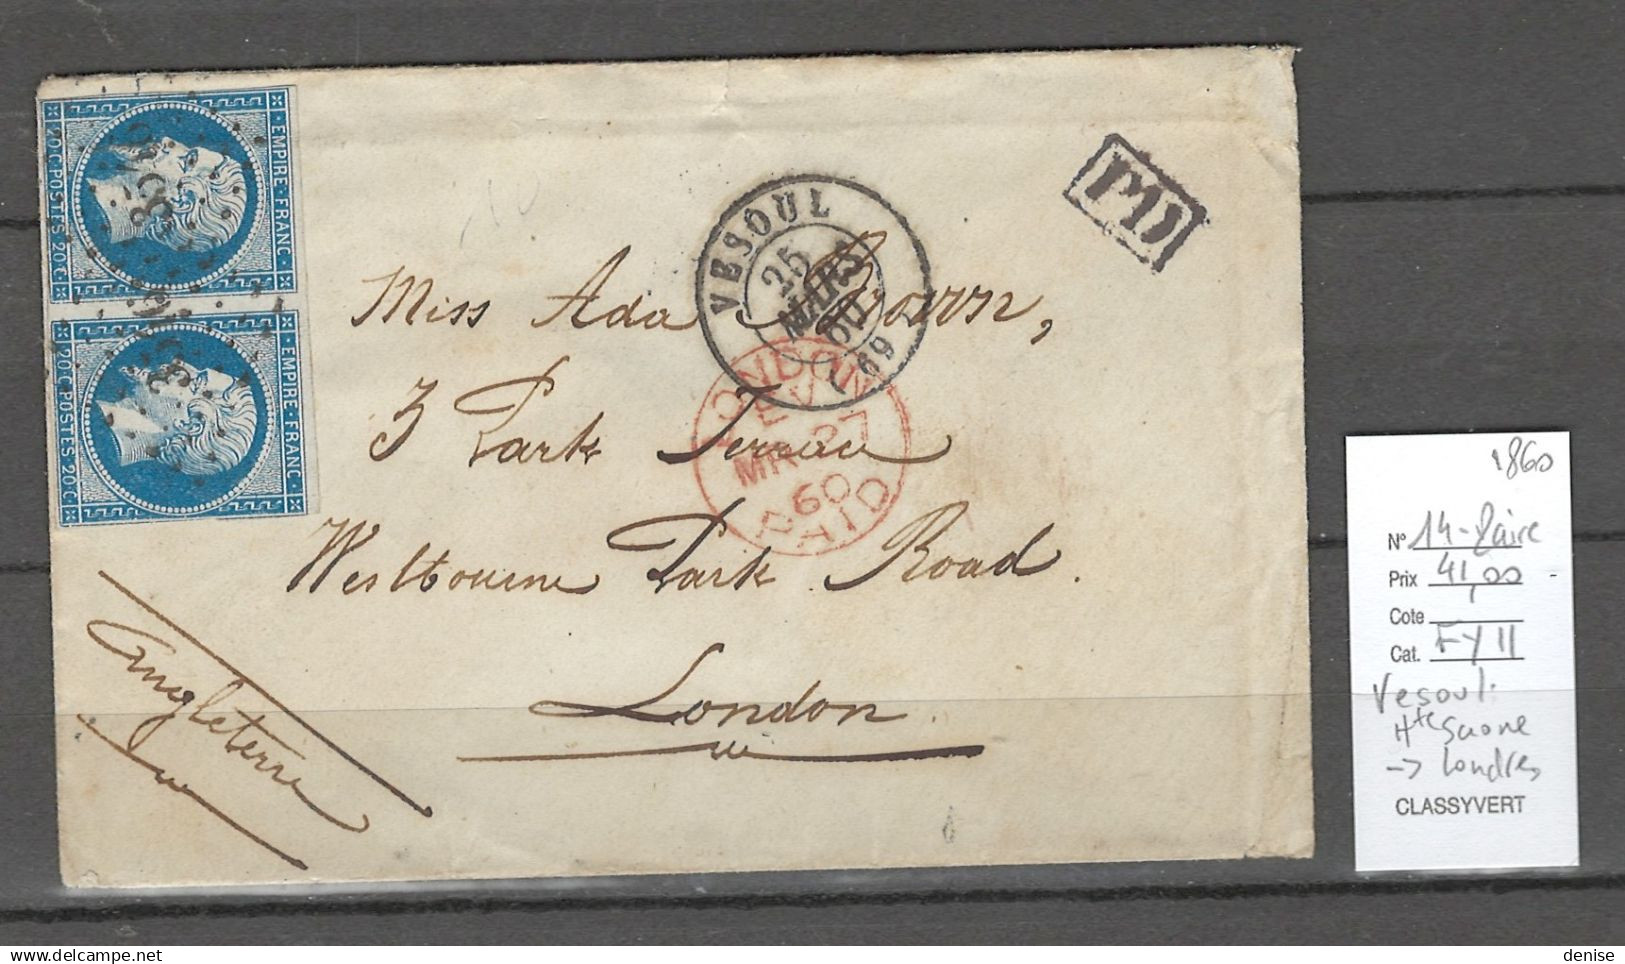 EMPIRE · FRANC ·
20 C · POSTES · 20 C ·
EMPIRE · FRANC ·
20 C · POSTES · 20 C ·
VESOUL
25
MARS
60
(69)
PD
LONDON
MR 27
60
PAID
Miss Ada Brown,
3 Park Terrace
Westbourne Park Road.
London.
Angleterre
1860
N° 14 - Paire
Prix 41,00
Cote
Cat. FY 11
Vesoul:
Hte Saone
-> Londres
CLASSYVERT
denise